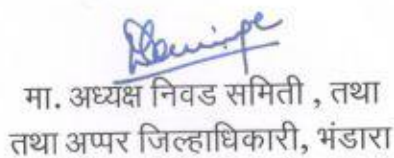 मा. अध्यक्ष निवड समिती , तथा
तथा अप्पर जिल्हाधिकारी, भंडारा